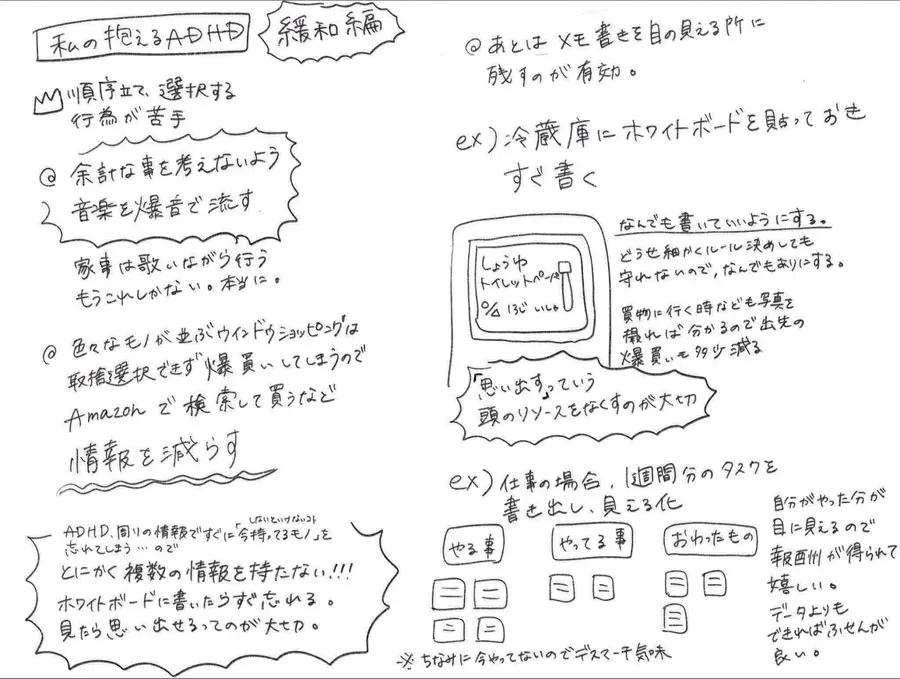 私の抱えるADHD
緩和編
順序立て、選択する
行為が苦手
@ 余計な事を考えないよう
音楽を爆音で流す
家事は歌いながら行う
もうこれしかない。本当に。
@ 色々なモノが並ぶウインドウショッピングは
取捨選択できず爆買いしてしまうので
Amazonで検索して買うなど
情報を減らす
しないといけないコト
ADHD、周りの情報ですぐに「今持ってるモノ」を
忘れてしまう…ので
とにかく複数の情報を持たない!!!
ホワイトボードに書いたらすぐ忘れる。
見たら思い出せるってのが大切。
@ あとはメモ書きを目の見える所に
残すのが有効。
ex) 冷蔵庫にホワイトボードを貼っておき
すぐ書く
しょうゆ
トイレットペーパー
0/4 13じ いしゃ
なんでも書いていいようにする。
どうせ細かくルール決めしても
守れないので、なんでもありにする。
買物に行く時なども写真を
撮れば分かるので出先の
爆買いも多少減る
「思い出す」っていう
頭のリソースをなくすのが大切
ex) 仕事の場合、1週間分のタスクを
書き出し、見える化
やる事
やってる事
おわったもの
自分がやった分が
目に見えるので
報酬が得られて
嬉しい。
データよりも
できればふせんが
良い。
※ ちなみに今やってないのでデスマーチ気味